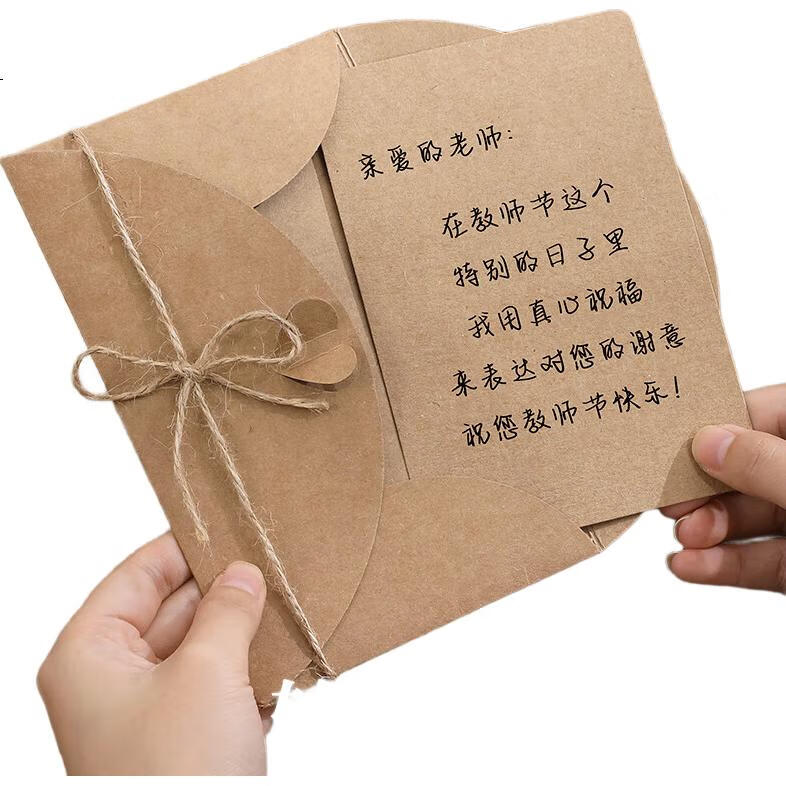 亲爱的老师:
在教师节这个
特别的日子里
我用真心祝福
来表达对您的谢意
祝您教师节快乐!